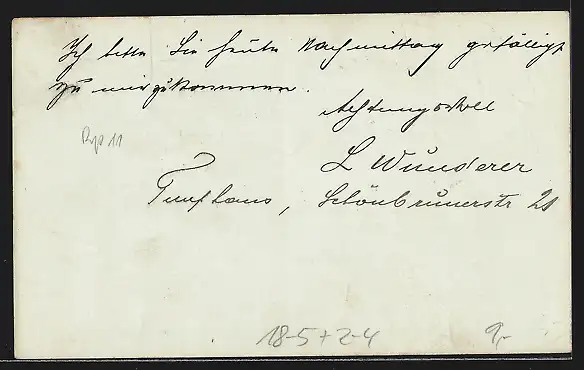 Ich bitte Sie heute Nachmittag gefälligst
zu mir zu kommen.
Achtungsvoll
L Wunderer
Schönbrunerstr 21
18-5+2-4
9,-